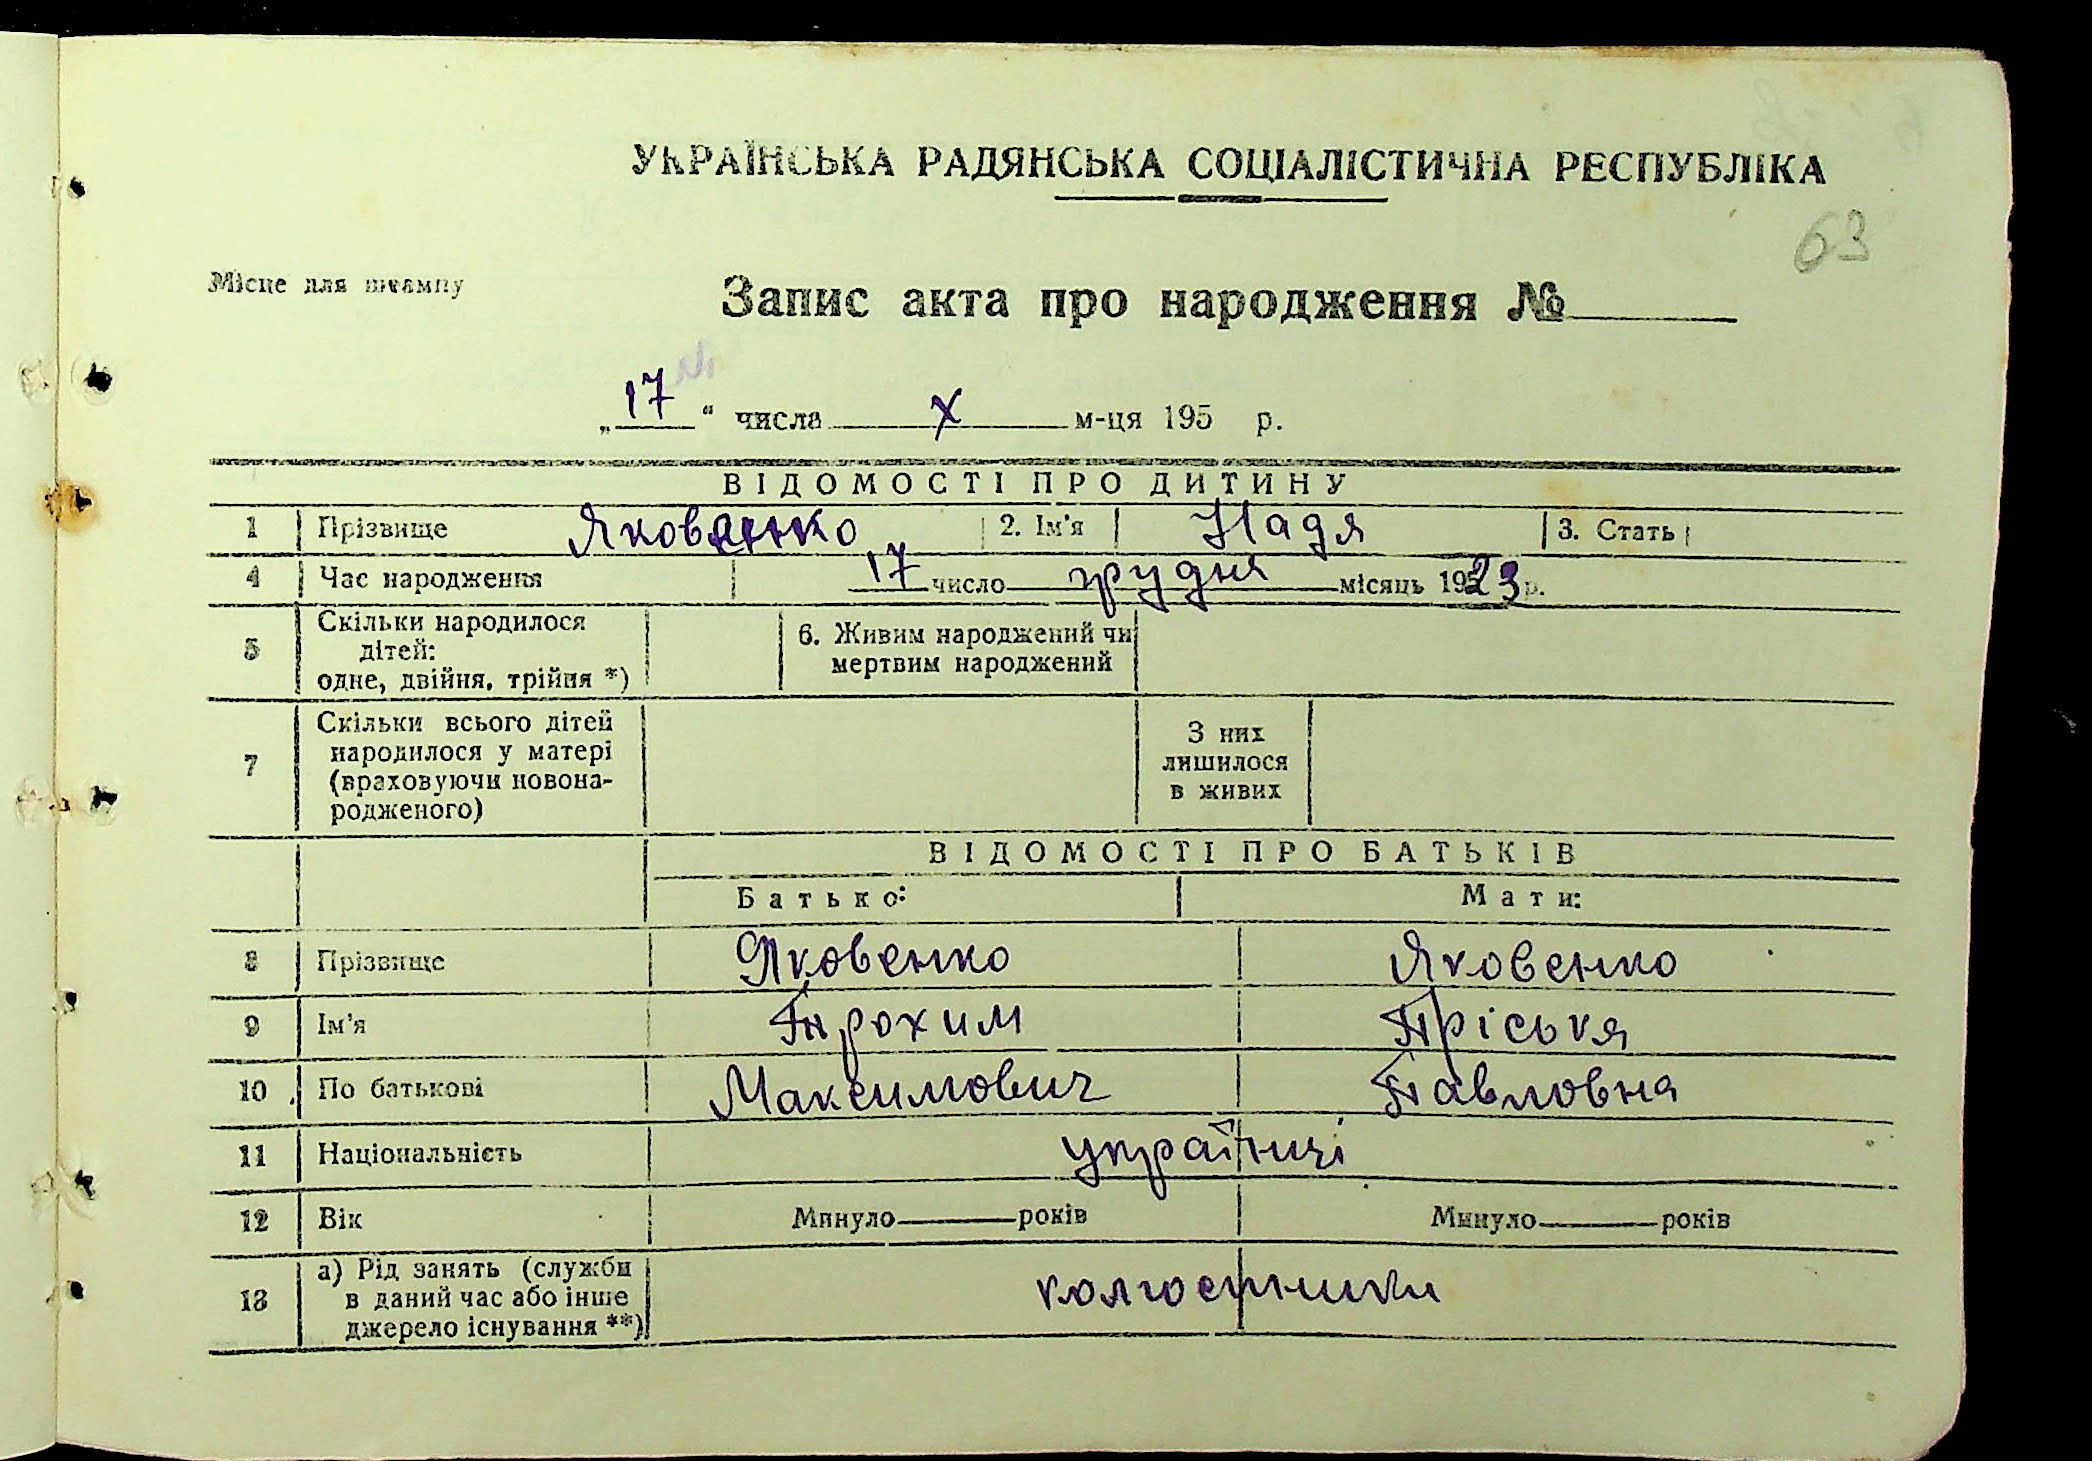 УКРАЇНСЬКА РАДЯНСЬКА СОЦІАЛІСТИЧНА РЕСПУБЛІКА
63
Місце для штампу
Запис акта про народження №
„17“ числа X м-ця 195 р.
ВІДОМОСТІ ПРО ДИТИНУ
1 Прізвище Яковенко 2. Ім'я Надя 3. Стать
4 Час народження 17 число грудня місяць 1923 р.
5 Скільки народилося дітей: одне, двійня, трійня *) 6. Живим народжений чи мертвим народжений
7 Скільки всього дітей народилося у матері (враховуючи новонародженого) З них лишилося в живих
ВІДОМОСТІ ПРО БАТЬКІВ
Батько: Мати:
8 Прізвище Яковенко Яковенко
9 Ім'я Трохим Пріська
10 По батькові Максимович Павловна
11 Національність українці
12 Вік Минуло років Минуло років
13 а) Рід занять (служби в даний час або інше джерело існування **) колгоспники